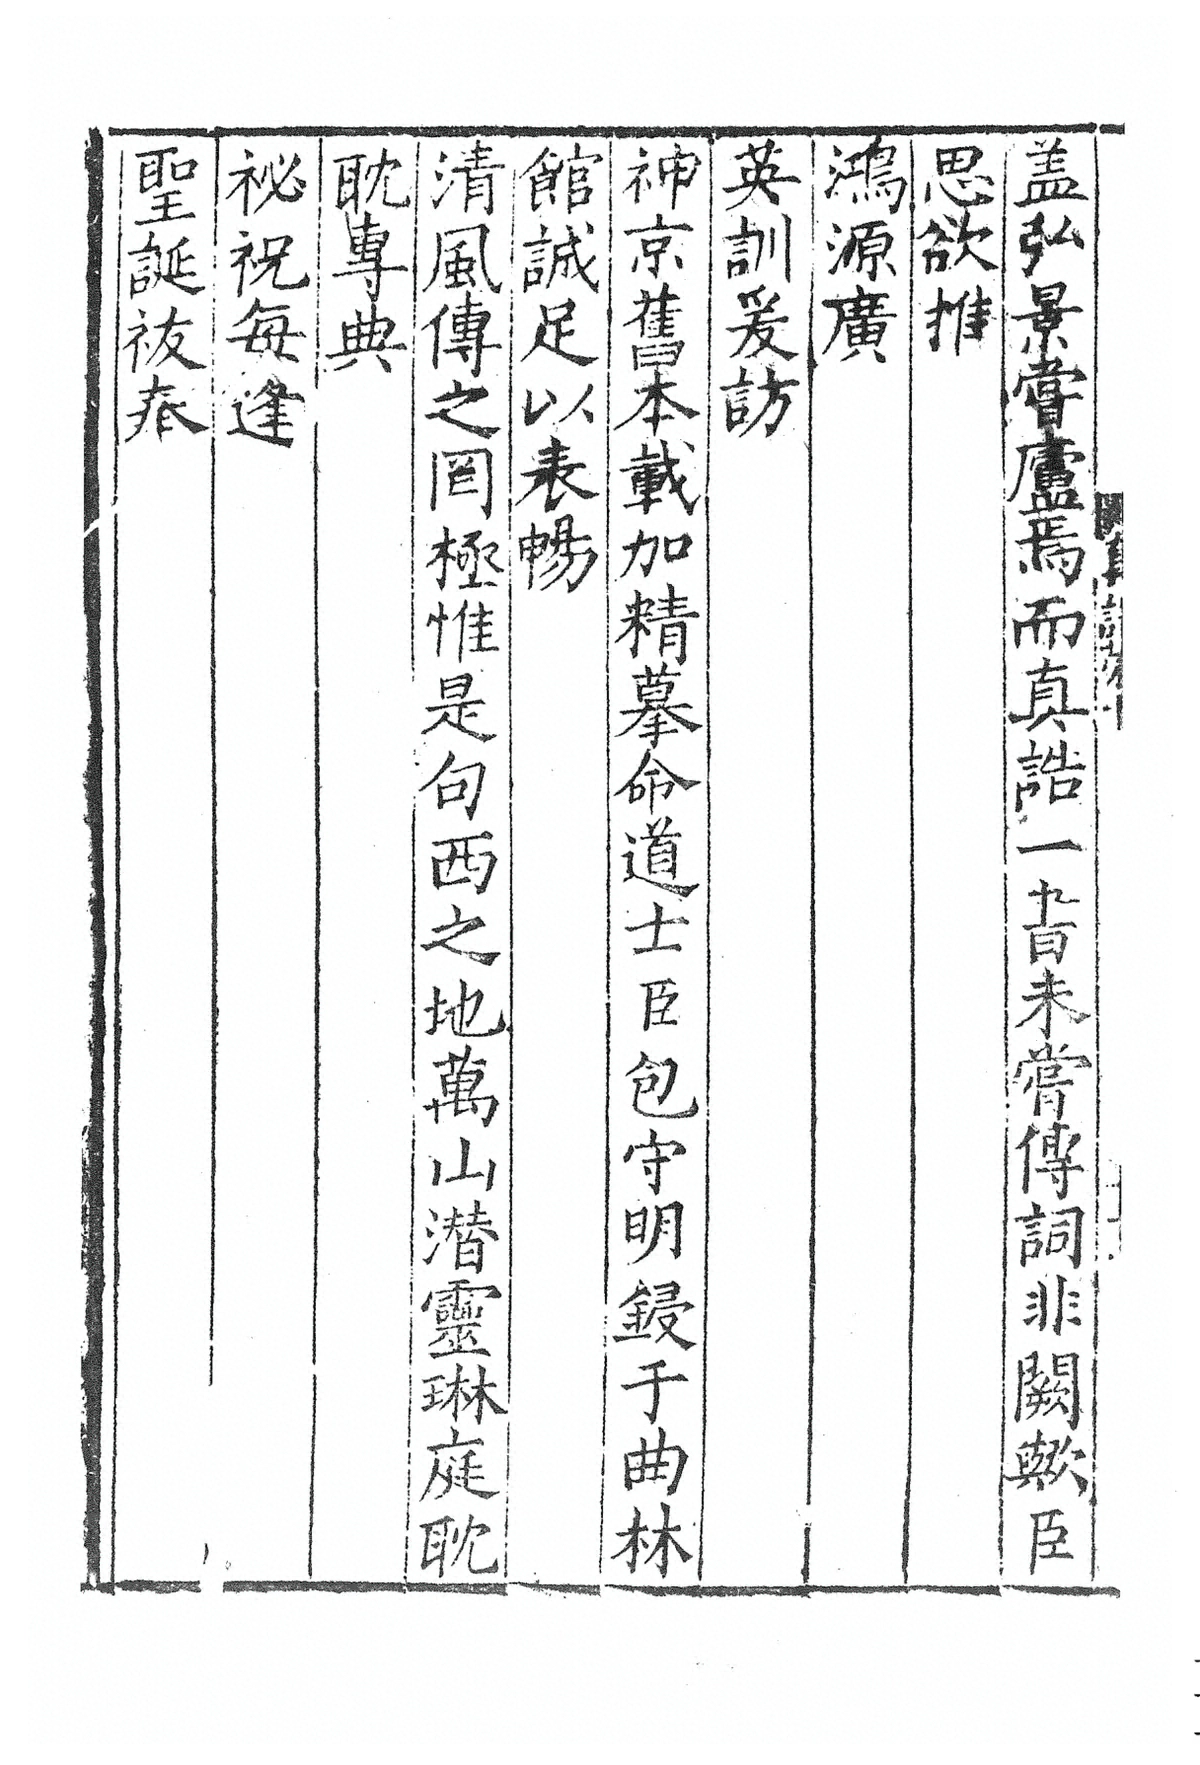 盖弘景嘗廬焉而真誥一書未嘗傳詞非闕歟臣
思欲推
鴻源廣
英訓爰訪
神京舊本載加精摹命道士臣包守明鋟于曲林
館誠足以表暢
清風傳之罔極惟是句西之地萬山潛靈琳庭耽
耽專典
祕祝每逢
聖誕祓齋